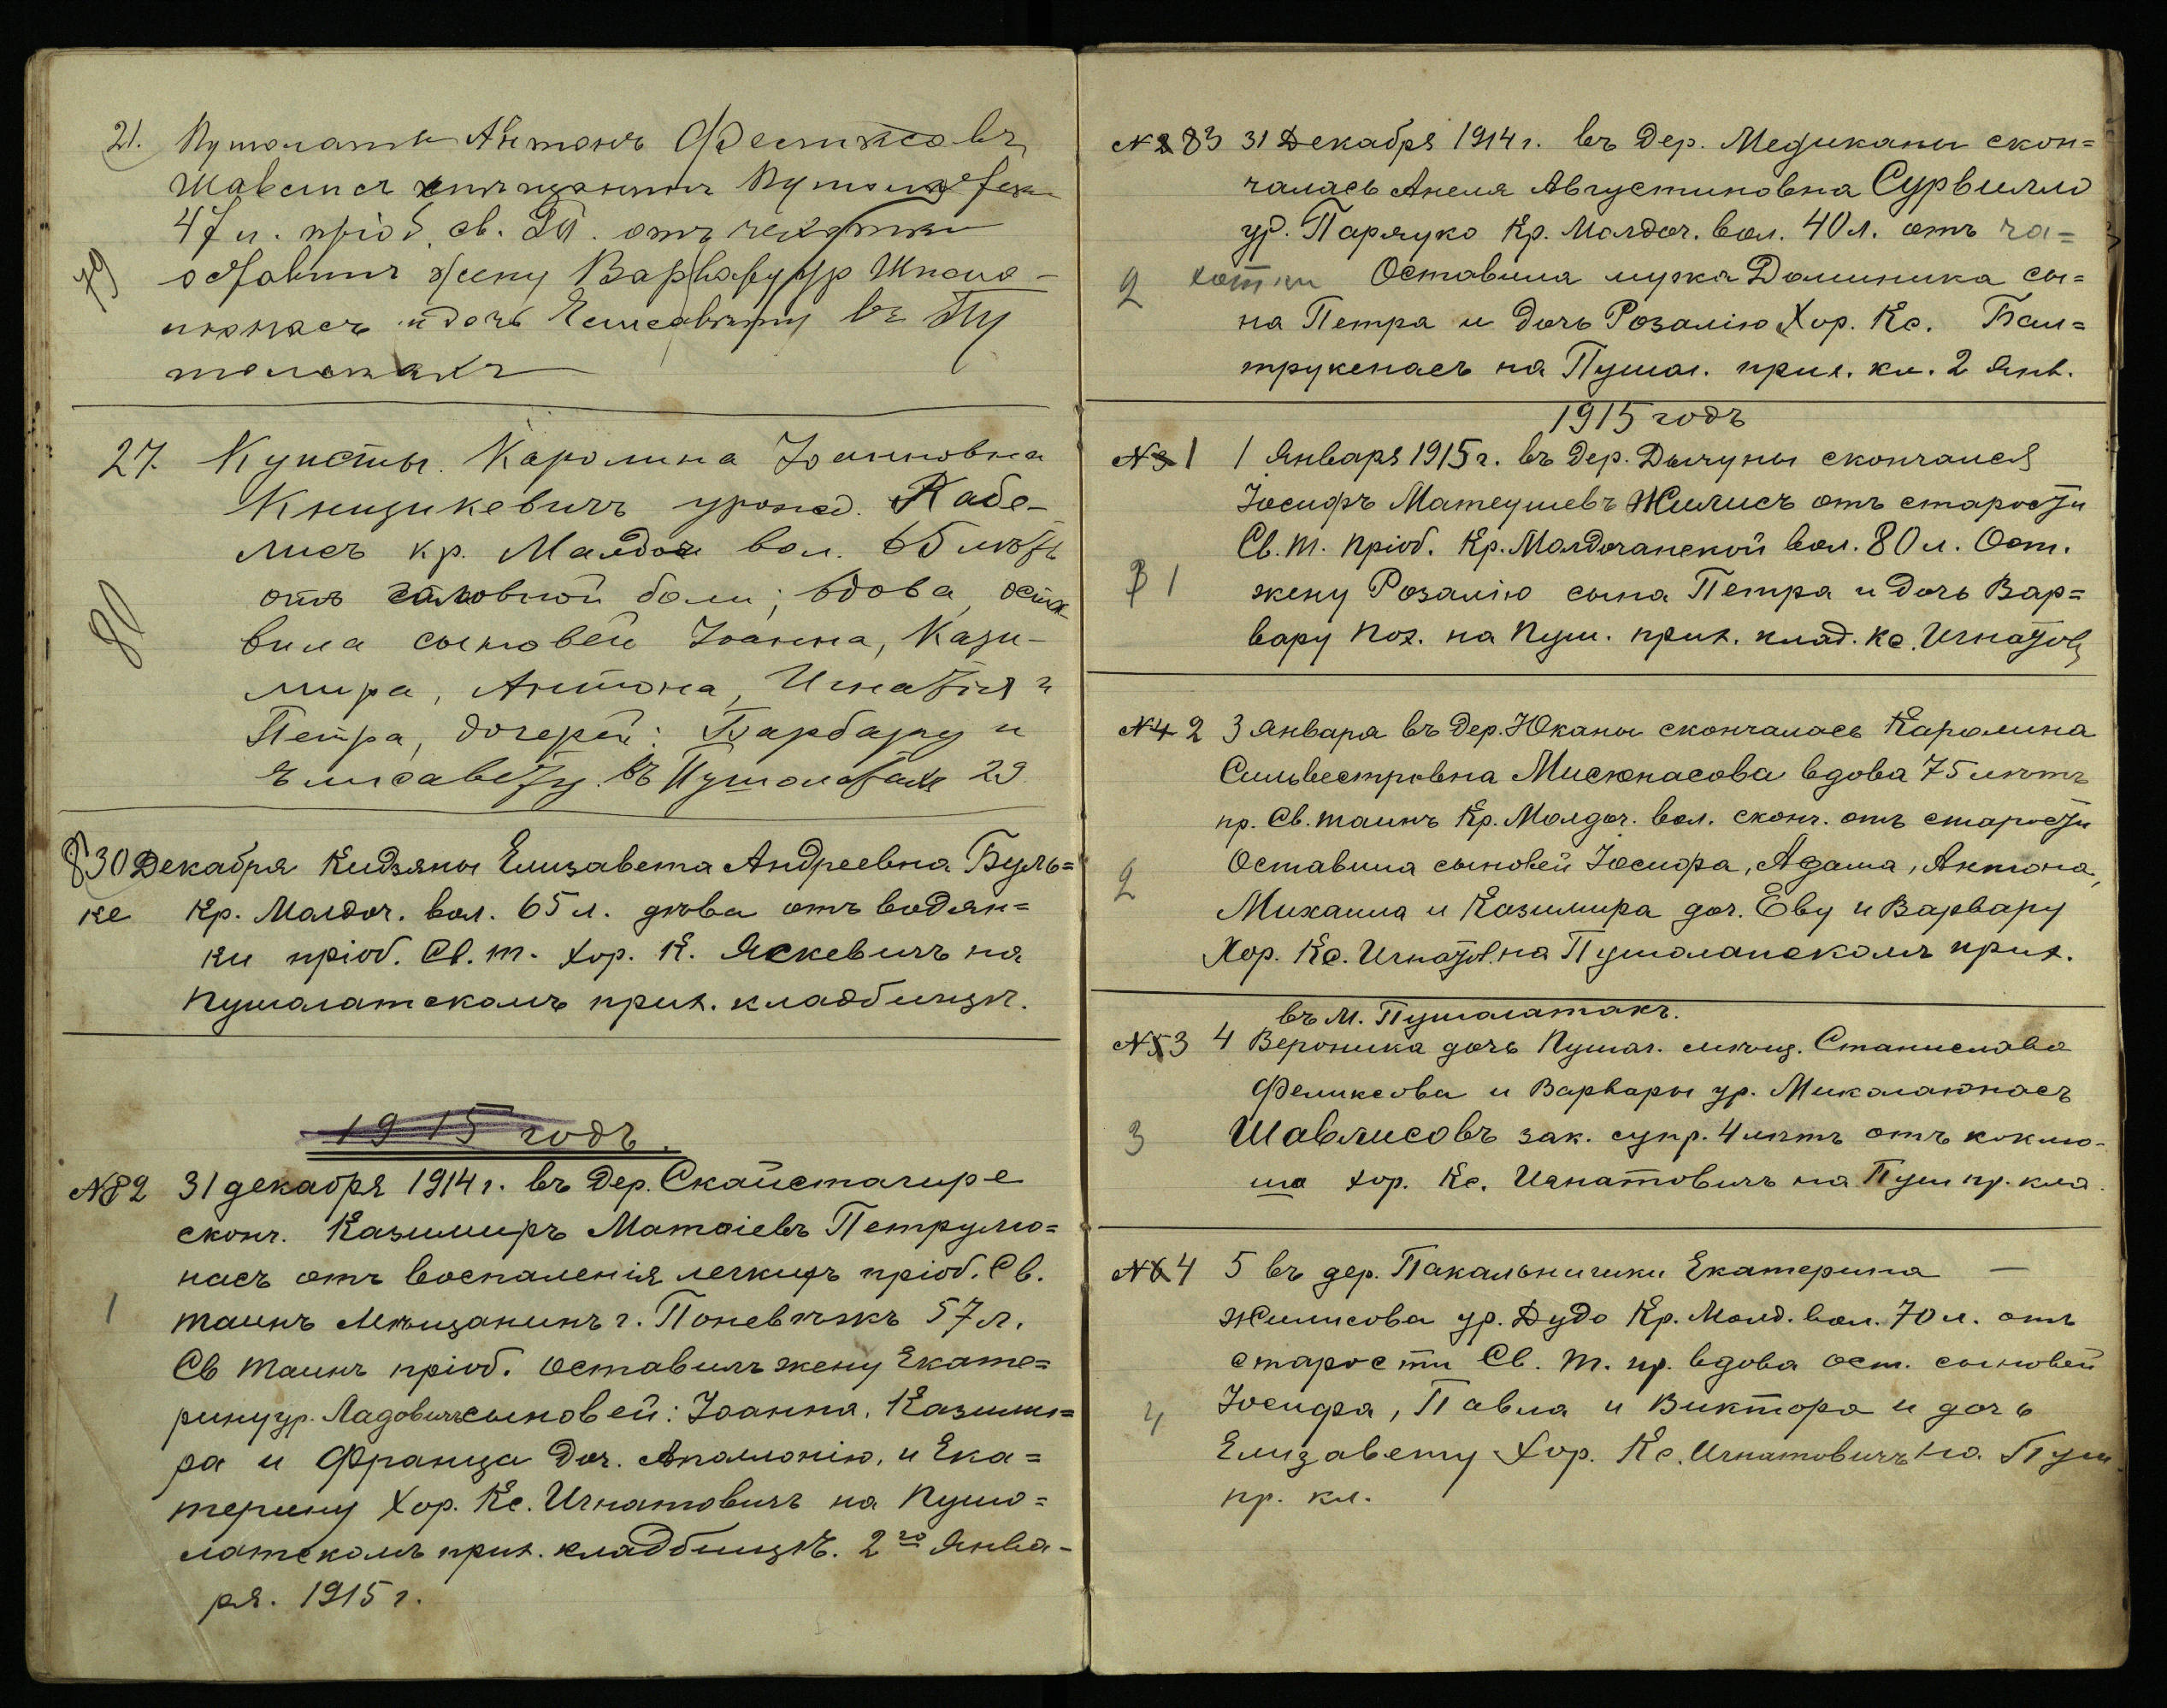 21. Пушолаты Антонъ Феликсовъ
Шавлисъ мѣщанинъ
47 л. пріоб. св. Т. отъ чахотки
79 оставилъ жену Варвару ур
и дочь Елисавету въ Пу
шолатахъ
27. Кунсты. Каролина Іоанновна
Кницикевичъ урожд. Кабе-
лисъ кр. Малдоч вол. 65 лѣтъ
отъ головной боли; вдова, оста
80 вила сыновей Іоанна, Кази-
мира, Антона, Игнатія и
Петра, дочерей: Барбару и
Елисавету. въ Пушолатахъ 29
30 Декабря Кидзяны Елизавета Андреевна Буль=
ке Кр. Малдоч. вол. 65 л. дѣва отъ водян=
ки пріоб. Св. т. Хор. К. Яскевичъ на
Пушолатскомъ прих. кладбищѣ.
1915 годъ.
№82 31 декабря 1914 г. въ дер. Скайстагире
сконч. Казимиръ Матвіевъ Петрулю=
насъ отъ воспаленія легкихъ пріоб. Св.
1 таинъ Мѣщанинъ г. Поневѣжъ 57 л.
Св таинъ пріоб. оставилъ жену Екате=
рину ур. Ладовичъ сыновей: Іоанна, Казими=
ра и Франца доч. Аполонію, и Ека=
терину Хор. Кс. Игнатовичъ на Пушо=
латскомъ прих. кладбищѣ. 2го Янва-
ря. 1915 г.
№ 83 31 Декабря 1914 г. въ дер. Медиканы скон=
чалась Анеля Августиновна Сурвилло
ур. Паряуко Кр. Малдоч. вол. 40 л. отъ ча=
2 хотки Оставила мужа Доминика сы=
на Петра и дочь Розалію Хор. Кс. Бал=
трукенасъ на Пушол. прих. кл. 2 Янв.
1915 годъ
№3 1 1 Января 1915 г. въ дер. Дычуны скончался
Іосифъ Матеушевъ Жилисъ отъ старости
Св. т. пріоб. Кр. Малдочанской вол. 80 л. Ост.
1 жену Розалію сына Петра и дочь Вар=
вару Пох. на Пуш. прих. клад. Кс. Игнатов
№4 2 3 Января въ дер. Юканы скончалась Каролина
Сильвестровна Мисюнасова вдова 75 лѣтъ
пр. Св. таинъ Кр. Молдоч. вол. сконч. отъ старости
2 Оставила сыновей Іосифа, Адама, Антона,
Михаила и Казимира доч. Еву и Варвару
Хор. Кс. Игнатов. на Пушоланскомъ прих.
въ м. Пушолатахъ.
№5 3 4 Вероника дочь Пушол. мѣщ. Станислава
Феликсова и Варвары ур. Миколаюнасъ
3 Шавлисовъ зак. супр. 4 лѣтъ отъ коклю-
ша Хор. Кс. Игнатовичъ на Пуш пр. кла.
№6 4 5 въ дер. Пакальнишки Екатерина —
Жилисова ур. Дудо Кр. Молд. вол. 70 л. отъ
старости Св. т. пр. вдова ост. сыновей
4 Іосифа, Павла и Виктора и дочь
Елизавету Хор. Кс. Игнатовичъ на Пуш
пр. кл.